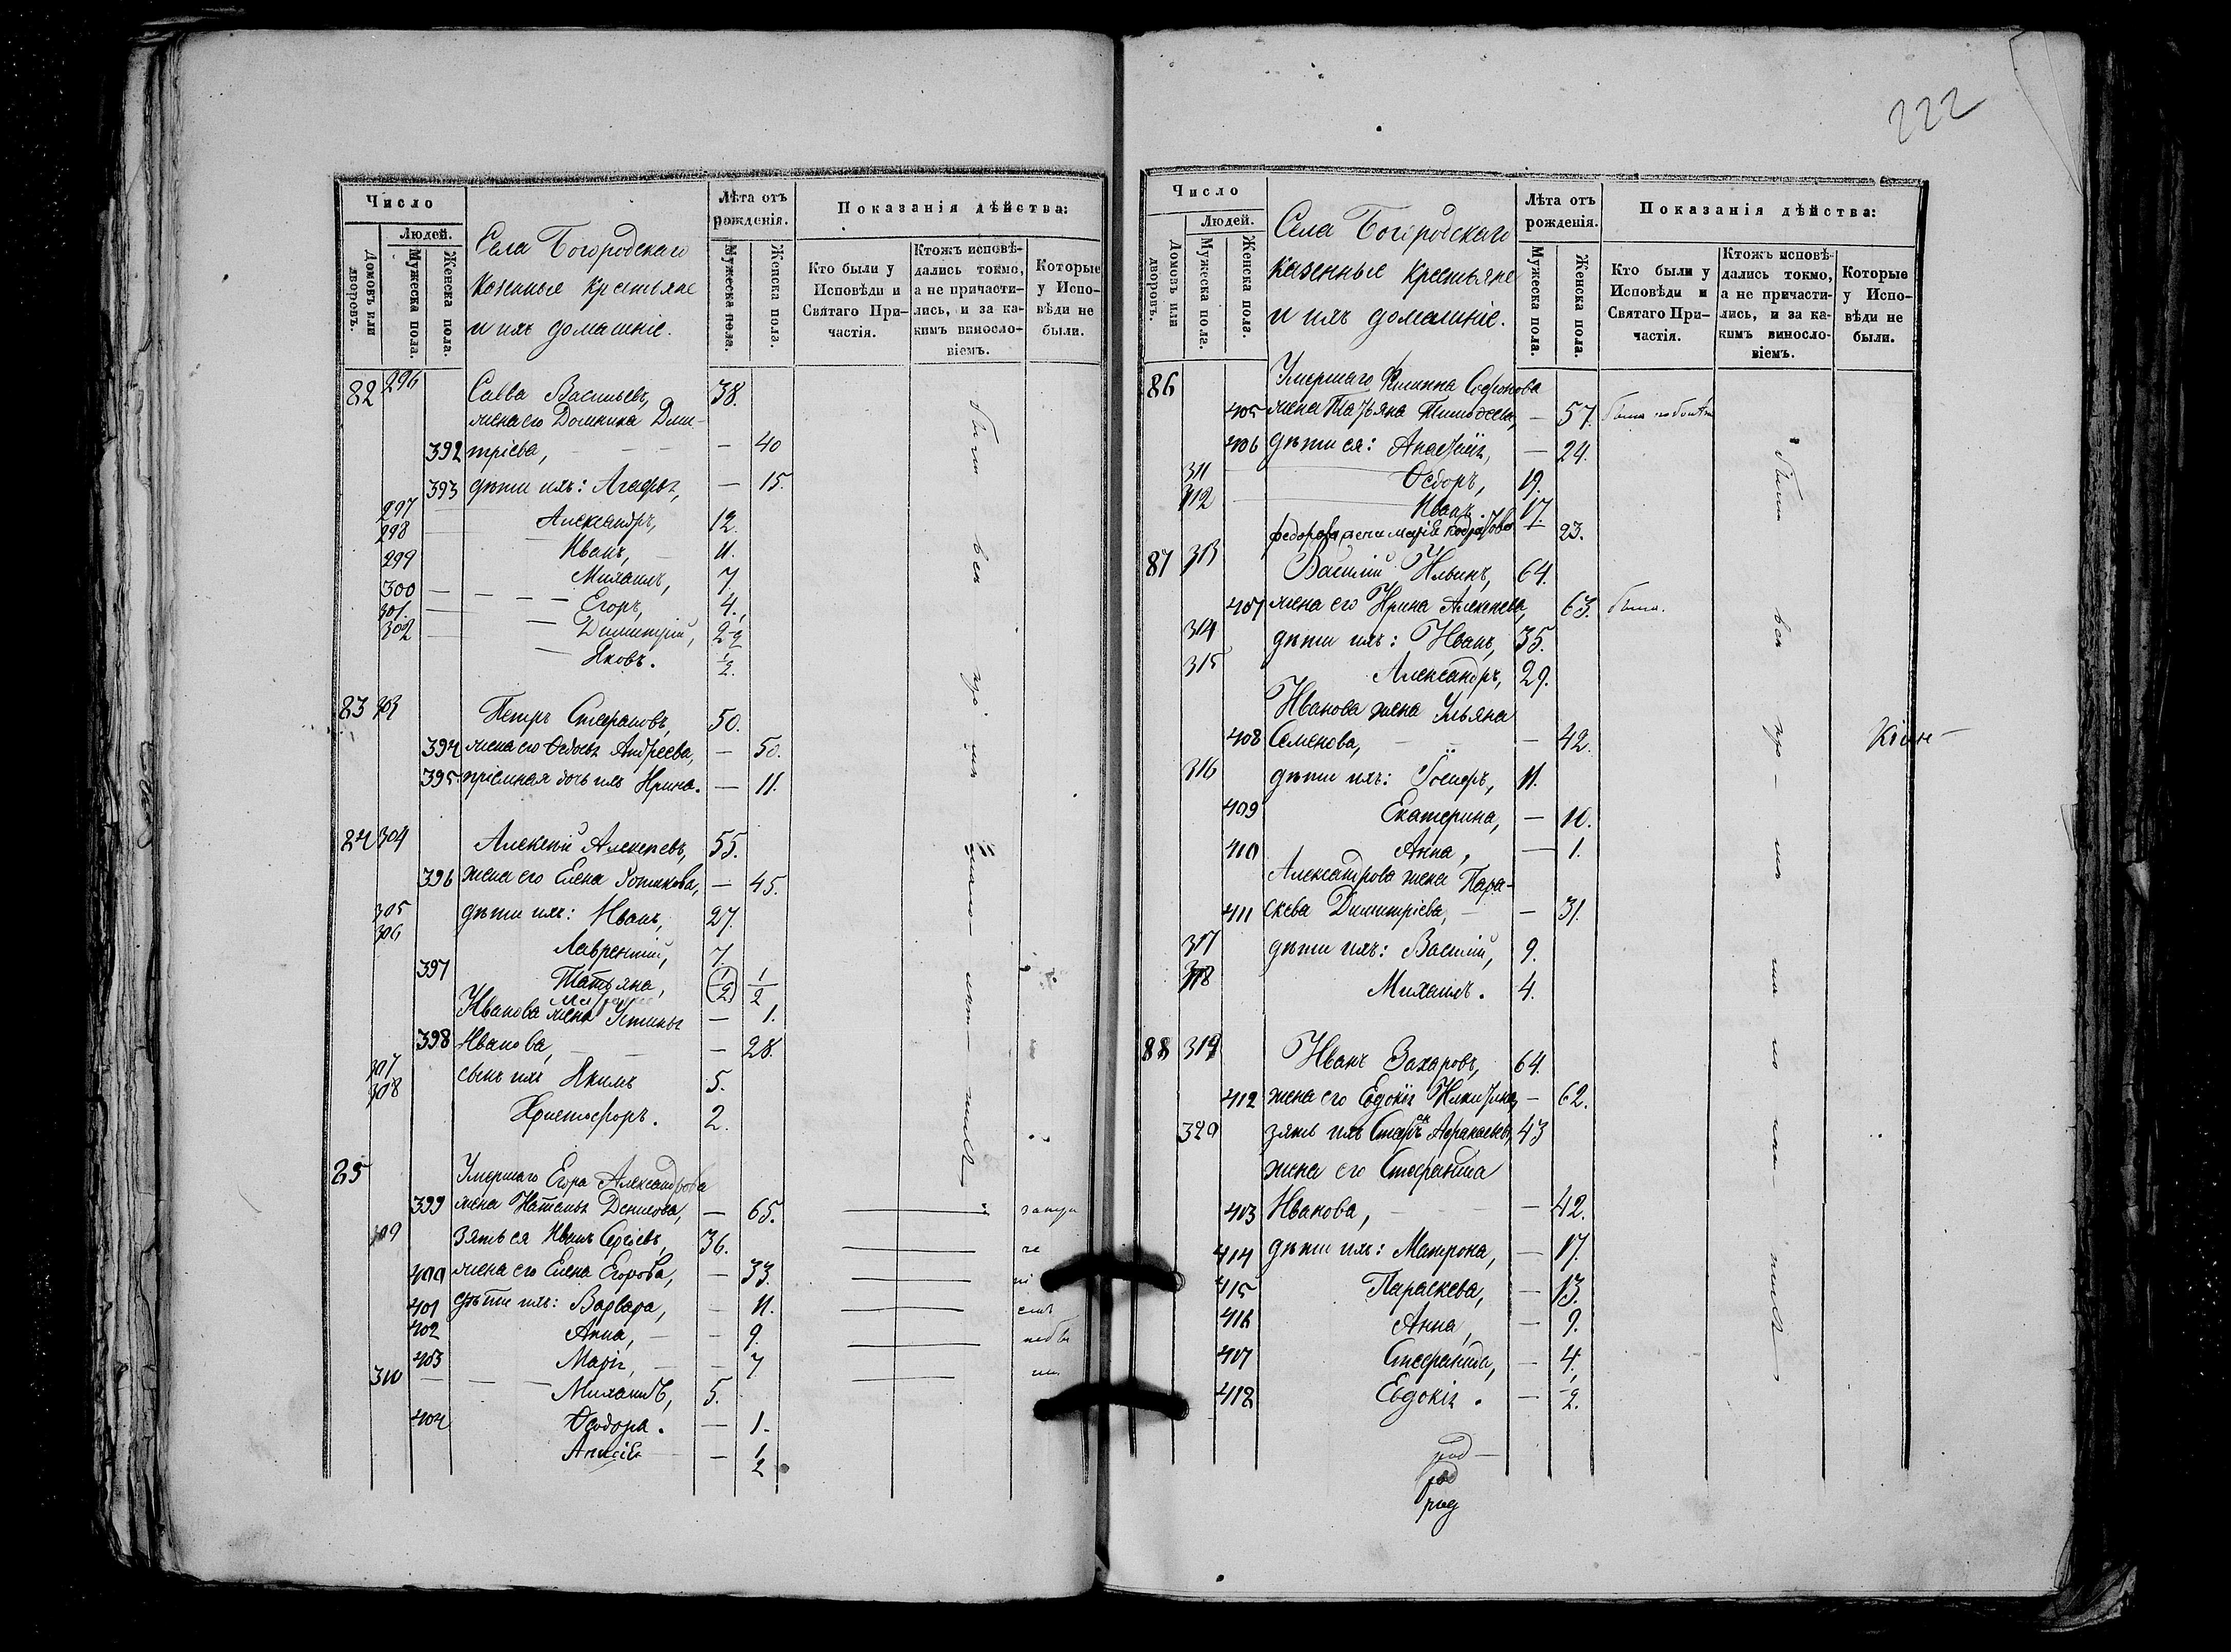 222
Число
Людей.
Домовъ или дворовъ.
Мужеска пола.
Женска пола.
Села Богородскаго
казенные крестьяне
и ихъ домашніе.
Лѣта отъ рожденія.
Мужеска пола.
Женска пола.
Показанія дѣйства:
Кто были у Исповѣди и Святаго Причастія.
Ктожъ исповѣдались токмо, а не причастились, и за какимъ винословіемъ.
Которые у Исповѣди не были.
82 296 Савва Васильевъ, 38.
жена его Домника Дми-
392 тріева, — 40
393 дѣти ихъ: Агафья, — 15.
297 Александръ, 12.
298 Иванъ, 11.
299 Михаилъ, 7
300 Егоръ, 4.
301. Димитрій, 2
302 Яковъ. 1/2.
83 303 Петръ Стефановъ, 50.
394 жена его Федосья Андреева, — 50.
395 пріемная дочь ихъ Ирина. — 11.
84 304 Алексій Алексѣевъ, 55.
396 жена его Елена — 45.
305 дѣти ихъ: Иванъ, 27.
306 Лаврентій, 7.
397 Татьяна, 1/2 1/2
Иванова жена Устинья — 1.
398 Иванова, — 28.
307 сынъ ихъ Якимъ 5.
308 Христофоръ. 2.
85 Умершаго Егора Александрова
399 жена Наталья Денисова, — 65.
309 Зять ея Иванъ Сергіевъ, 36.
400 жена его Елена Егорова, — 33.
401 дѣти ихъ: Варвара, — 11.
402 Анна, — 9.
403 Марія, — 7
310 Михаилъ, 5.
404 Феодора. — 1.
Анисія — 1/2
Число
Людей.
Домовъ или дворовъ.
Мужеска пола.
Женска пола.
Села Богородскаго
казенные крестьяне
и ихъ домашніе.
Лѣта отъ рожденія.
Мужеска пола.
Женска пола.
Показанія дѣйства:
Кто были у Исповѣди и Святаго Причастія.
Ктожъ исповѣдались токмо, а не причастились, и за какимъ винословіемъ.
Которые у Исповѣди не были.
86 Умершаго Филиппа Софонова
405 жена Татьяна Тимофеева, — 57.
406 дѣти ея: — 24.
311 Федоръ, 19.
312 Иванъ. 17
Федорова жена Марія 23.
87 313 Василій Ильинъ, 64.
407 жена его Ирина Алексѣева, 63. была.
314 дѣти ихъ: Иванъ, 35.
315 Александръ, 29.
Иванова жена Ульяна
408 Семенова, — 42.
316 дѣти ихъ: Іосифъ, 11.
409 Екатерина, — 10.
410 Анна, — 1.
Александрова жена Пара-
411 скева Димитріева, — 31.
317 дѣти ихъ: Василій, 9.
318 Михаилъ. 4.
88 319 Иванъ Захаровъ, 64.
412 жена его Евдокія Никитина, — 62.
320 зять ихъ 43
жена его Стефанида
413 Иванова, — 42.
414 дѣти ихъ: Матрона, — 17.
415 Параскева, — 13.
416 Анна, — 9.
417 Стефанида, — 4.
418 Евдокія. — 1/2.
род
род
род